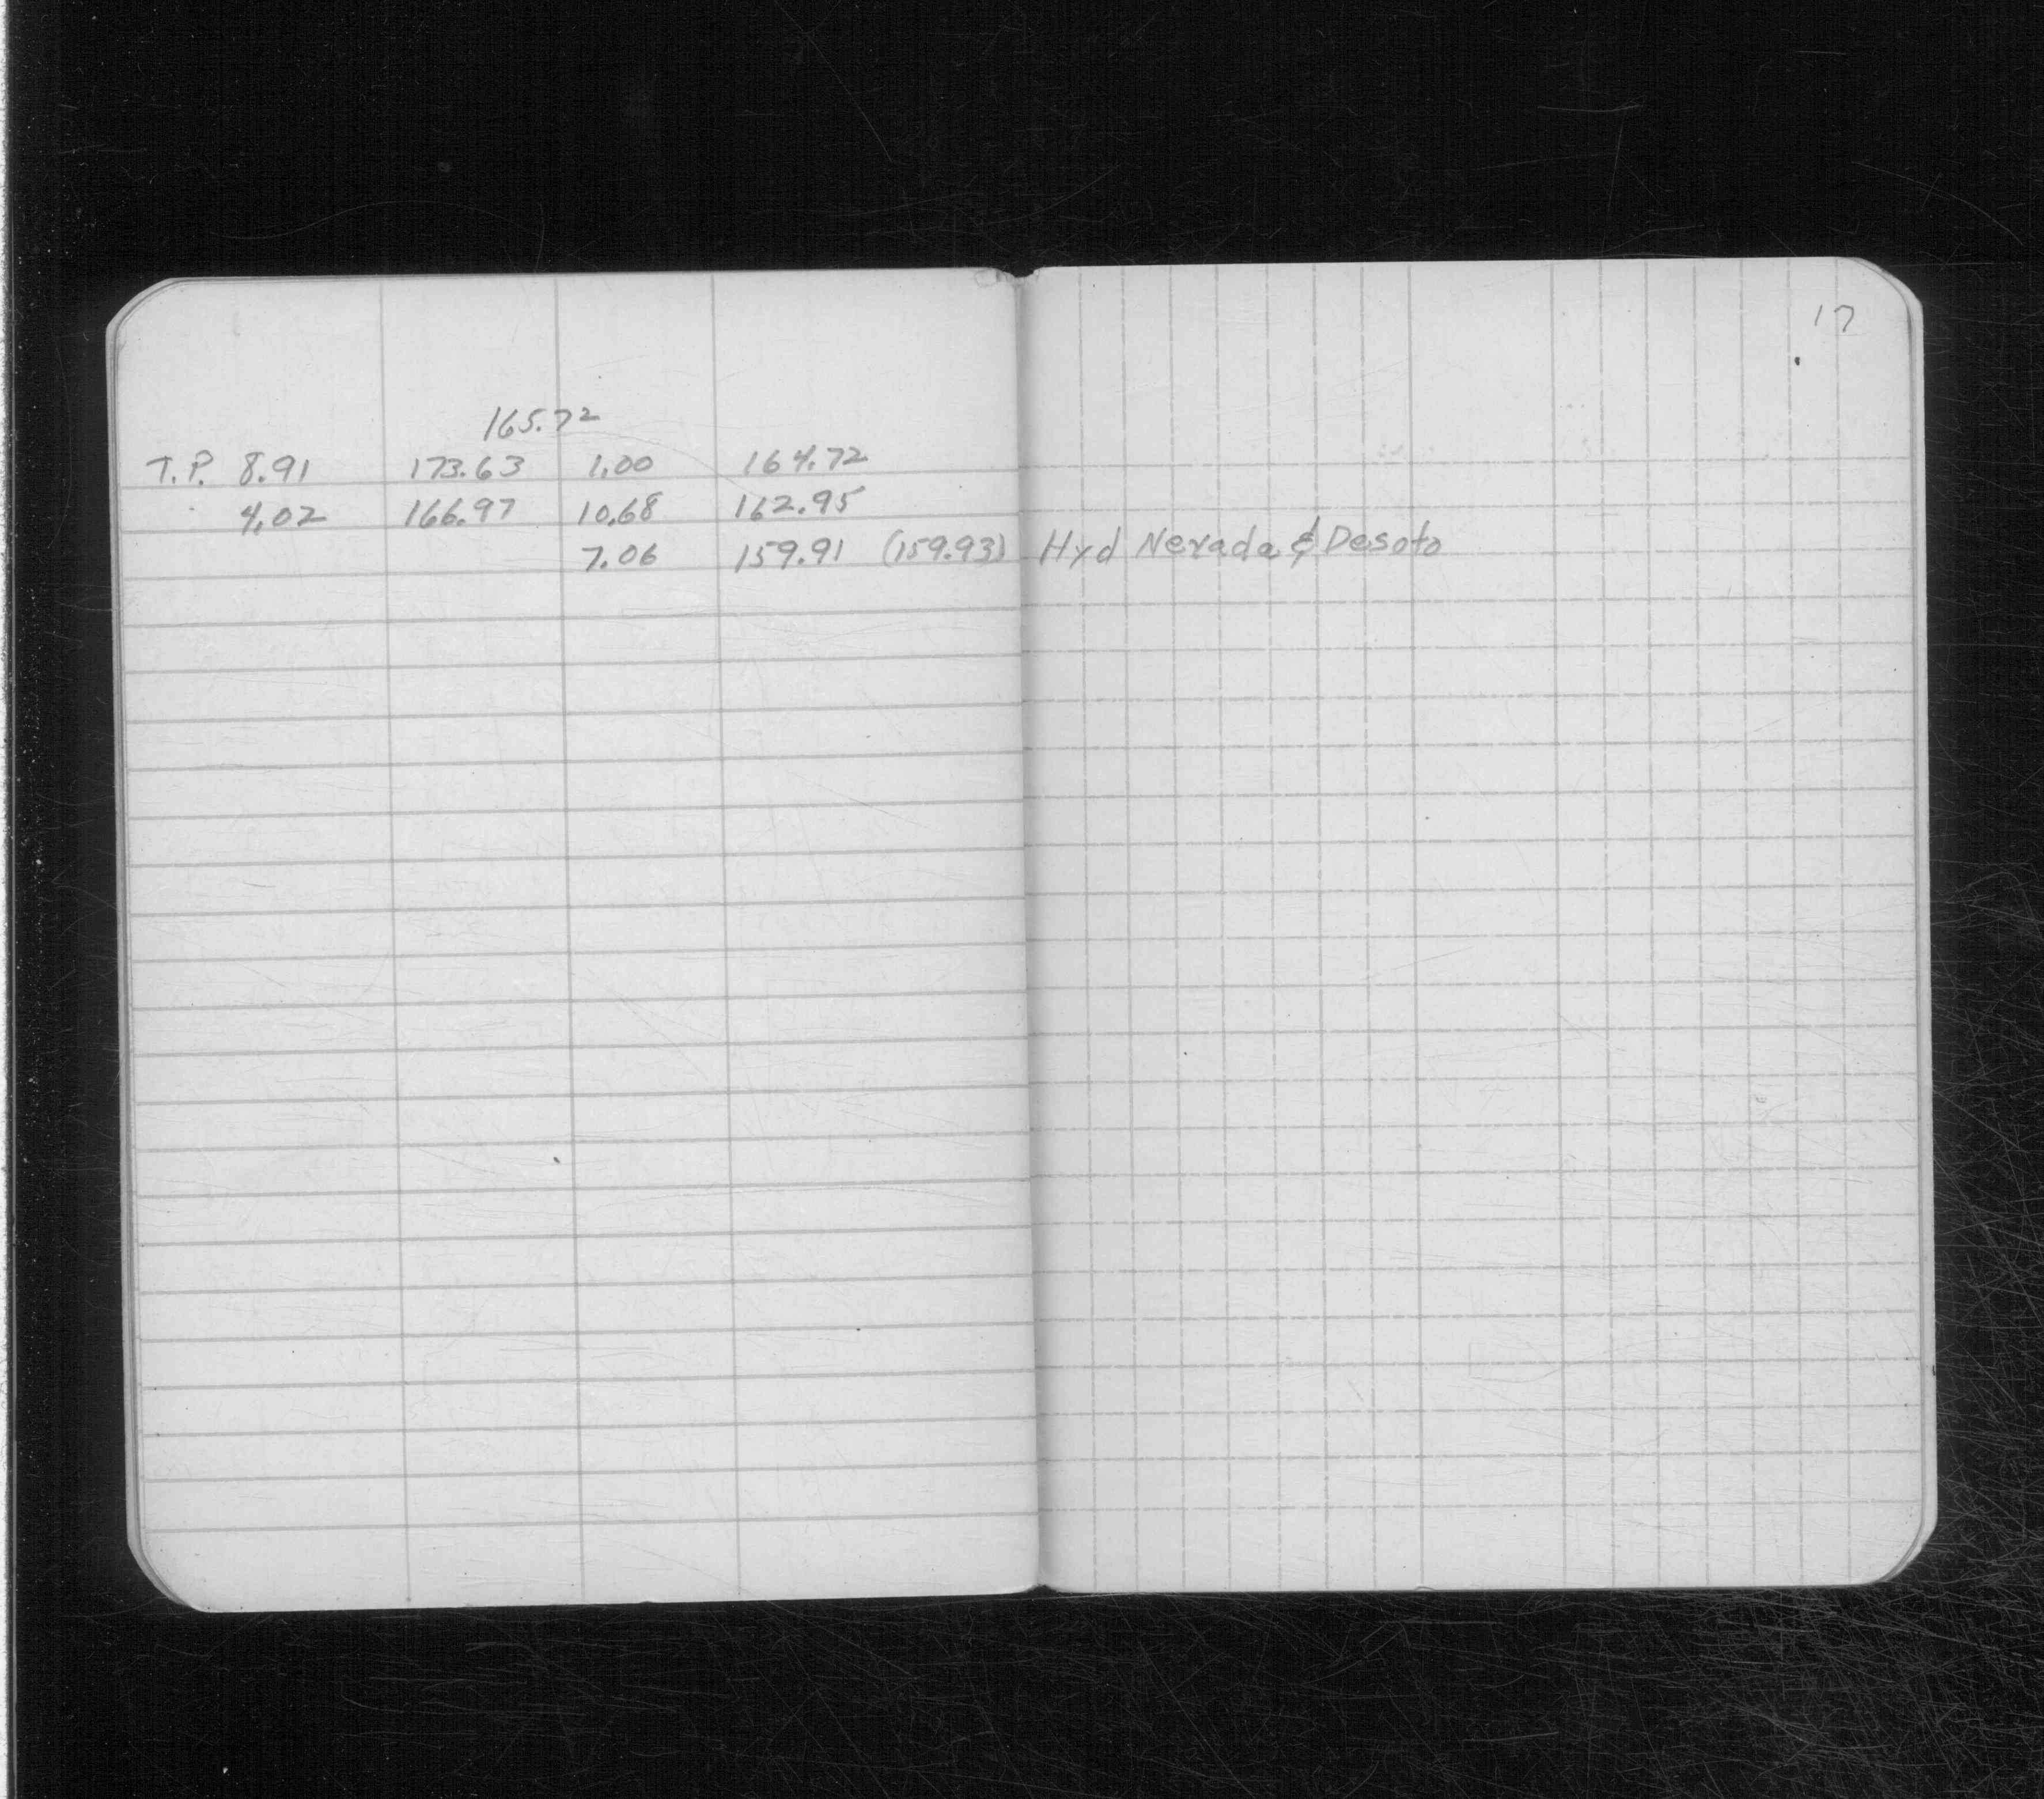 17
165.72
T.P. 8.91 173.63 1.00 164.72
4.02 166.97 10.68 162.95
7.06 159.91 (159.93) Hyd Nevada & Desoto